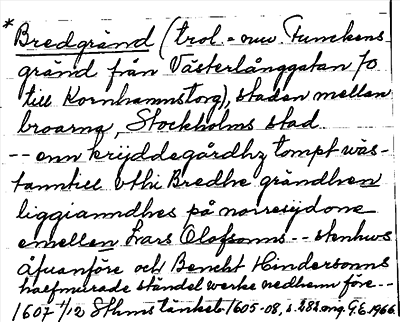 * Bredgränd (trol. = nuv. Funckens
gränd från Västerlånggatan 70
till Kornhamnstorg), staden mellan
broarna, Stockholms stad.
-- enn krijddegårdhz tompt wäs-
tanntill vthi Bredhe grändhen
liggianndhes på norresijdone
emellen Lars Olofsonns -- stenhws
åfuanföre och Bencht Hindersonns
halfmurade ständelwerke nedhem före --
1607 4/12 Sthms tänkeb. 1605-08, s. 282. ang. G.E. 1966.